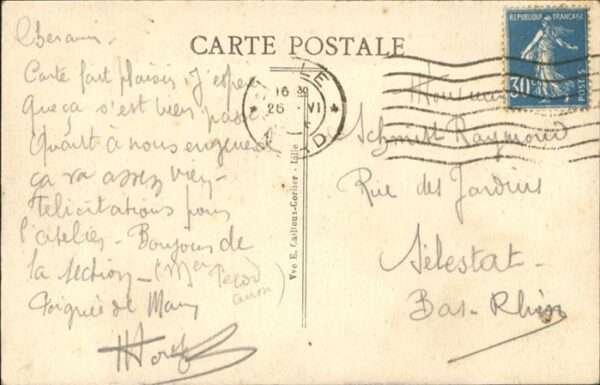 CARTE POSTALE
Carte fait plaisir. J'espère
Que ça s'est bien passé
Quant à nous
ça va assez bien -
félicitations pour
l'atelier - Bonjour de
la section -
Poignée de Main
Vve E. Cailteux-Cortier - Lille
REPUBLIQUE FRANÇAISE
30c
POSTES
16 30
26 VI
Monsieur
Schmitt Raymond
Rue des Jardins
Sélestat -
Bas-Rhin